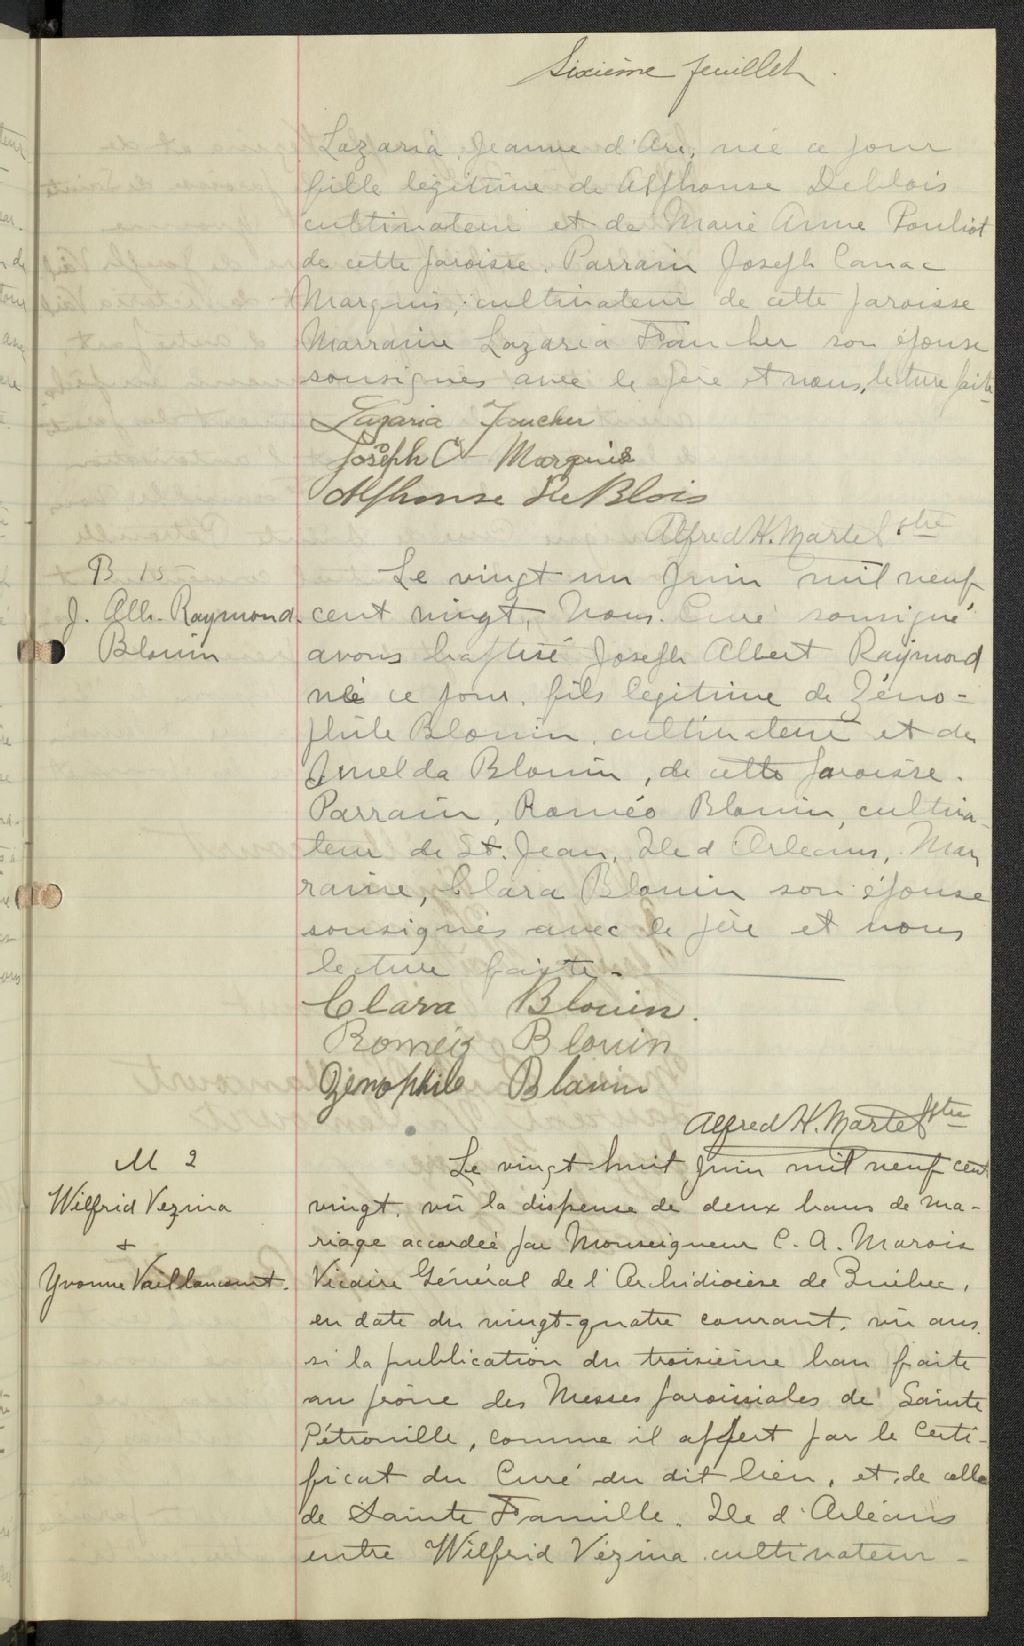 Sixième feuillet.
Lazaria, Jeanne d'Arc, née ce jour
fille légitime de Alphonse Deblois
cultivateur et de Marie Anne Pouliot
de cette paroisse. Parrain Joseph Canac
Marquis, cultivateur de cette paroisse
Marraine Lazaria Faucher son épouse
sousignés avec le père et nous, lecture faite
Lazaria Faucher
Joseph C Marquis
Alphonse DeBlois
Alfred H. Martel ptre
B 15
J. Alb. Raymond
Blouin
Le vingt un Juin mil neuf
cent vingt, Nous Curé sousigné
avons baptisé Joseph Albert Raymond
né ce jour, fils légitime de Zéno-
phile Blouin, cultivateur et de
Imelda Blouin, de cette paroisse.
Parrain, Roméo Blouin, cultiva-
teur de St. Jean, Ile d'Orleans, Mar
raine, Clara Blouin son épouse
sousignés avec le père et nous
lecture faite.
Clara Blouin.
Roméo Blouin
Zénophile Blouin
Alfred H. Martel ptre
M 2
Wilfrid Vezina
+
Yvonne Vaillancourt.
Le vingt huit Juin mil neuf cent
vingt, vû la dispense de deux bans de ma-
riage accordée par Monseigneur C. A. Marois
Vicaire Général de l'Archidiocèse de Québec,
en date du vingt-quatre courant, vû aus
si la publication du troisième ban faite
au prône des Messes paroissiales de Sainte
Pétronille, comme il appert par le Certi-
ficat du Curé du dit lieu, et de celle
de Sainte Famille. Ile d'Orléans
entre Wilfrid Vézina cultivateur -